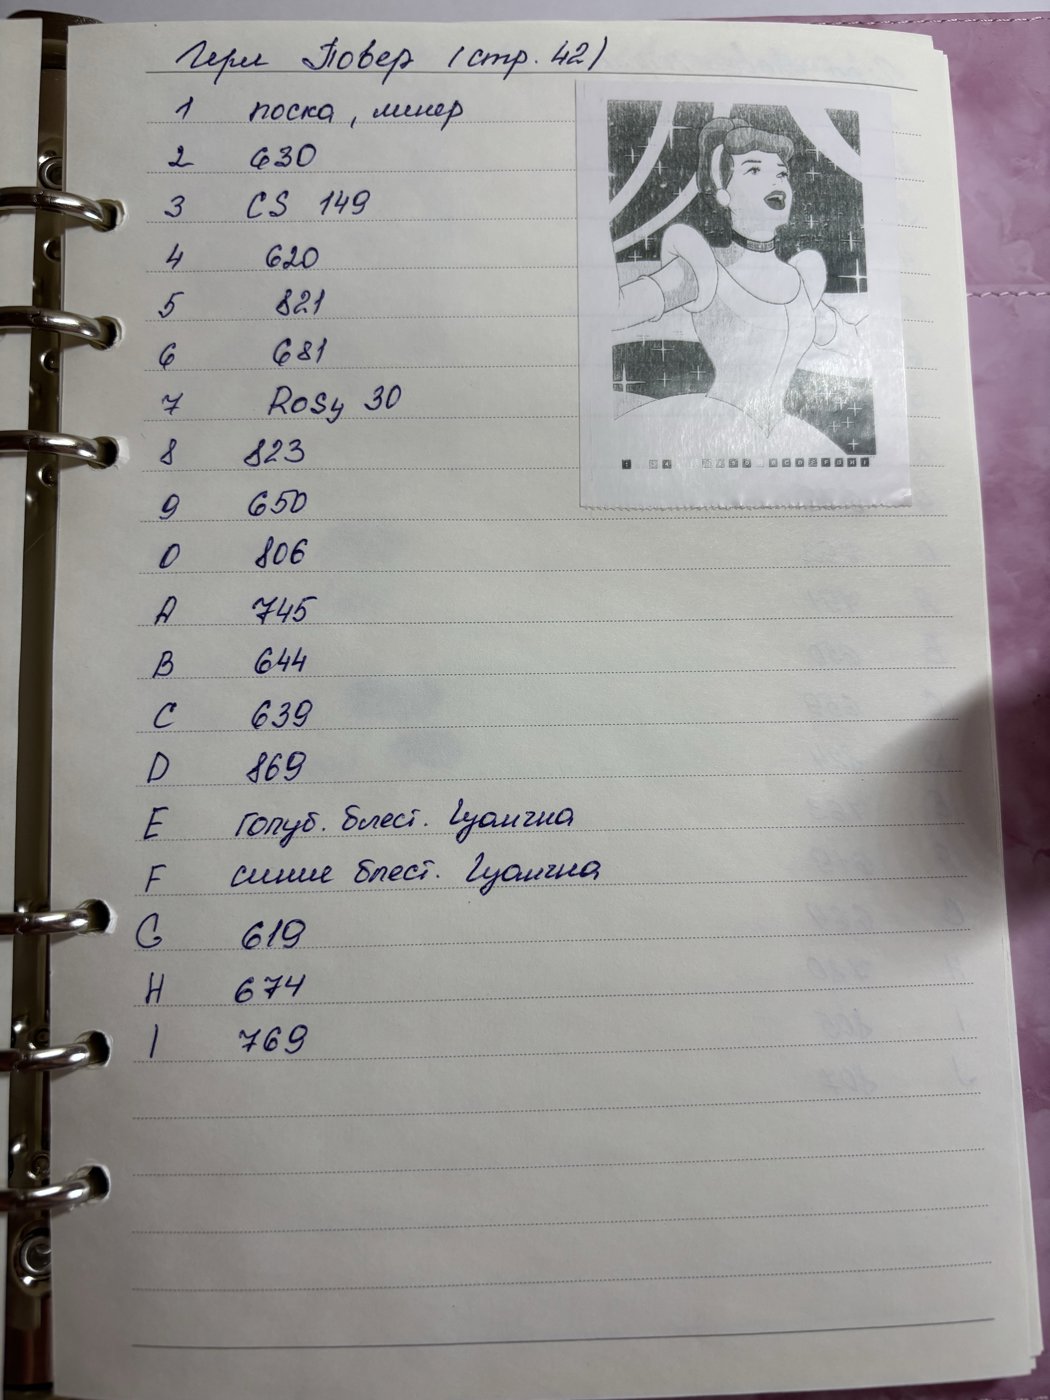 Герл Повер (стр. 42)
1 поска, линер
2 630
3 CS 149
4 620
5 821
6 681
7 Rosy 30
8 823
9 650
0 806
A 745
B 644
C 639
D 869
E голуб. блест. Гуангна
F синие блест. Гуангна
G 619
H 674
I 769